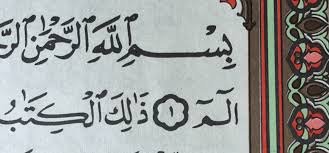 بِسْمِ ٱللَّهِ ٱلرَّحْمَٰنِ
الٓمٓ ١ ذَٰلِكَ ٱلْكِتَٰبُ